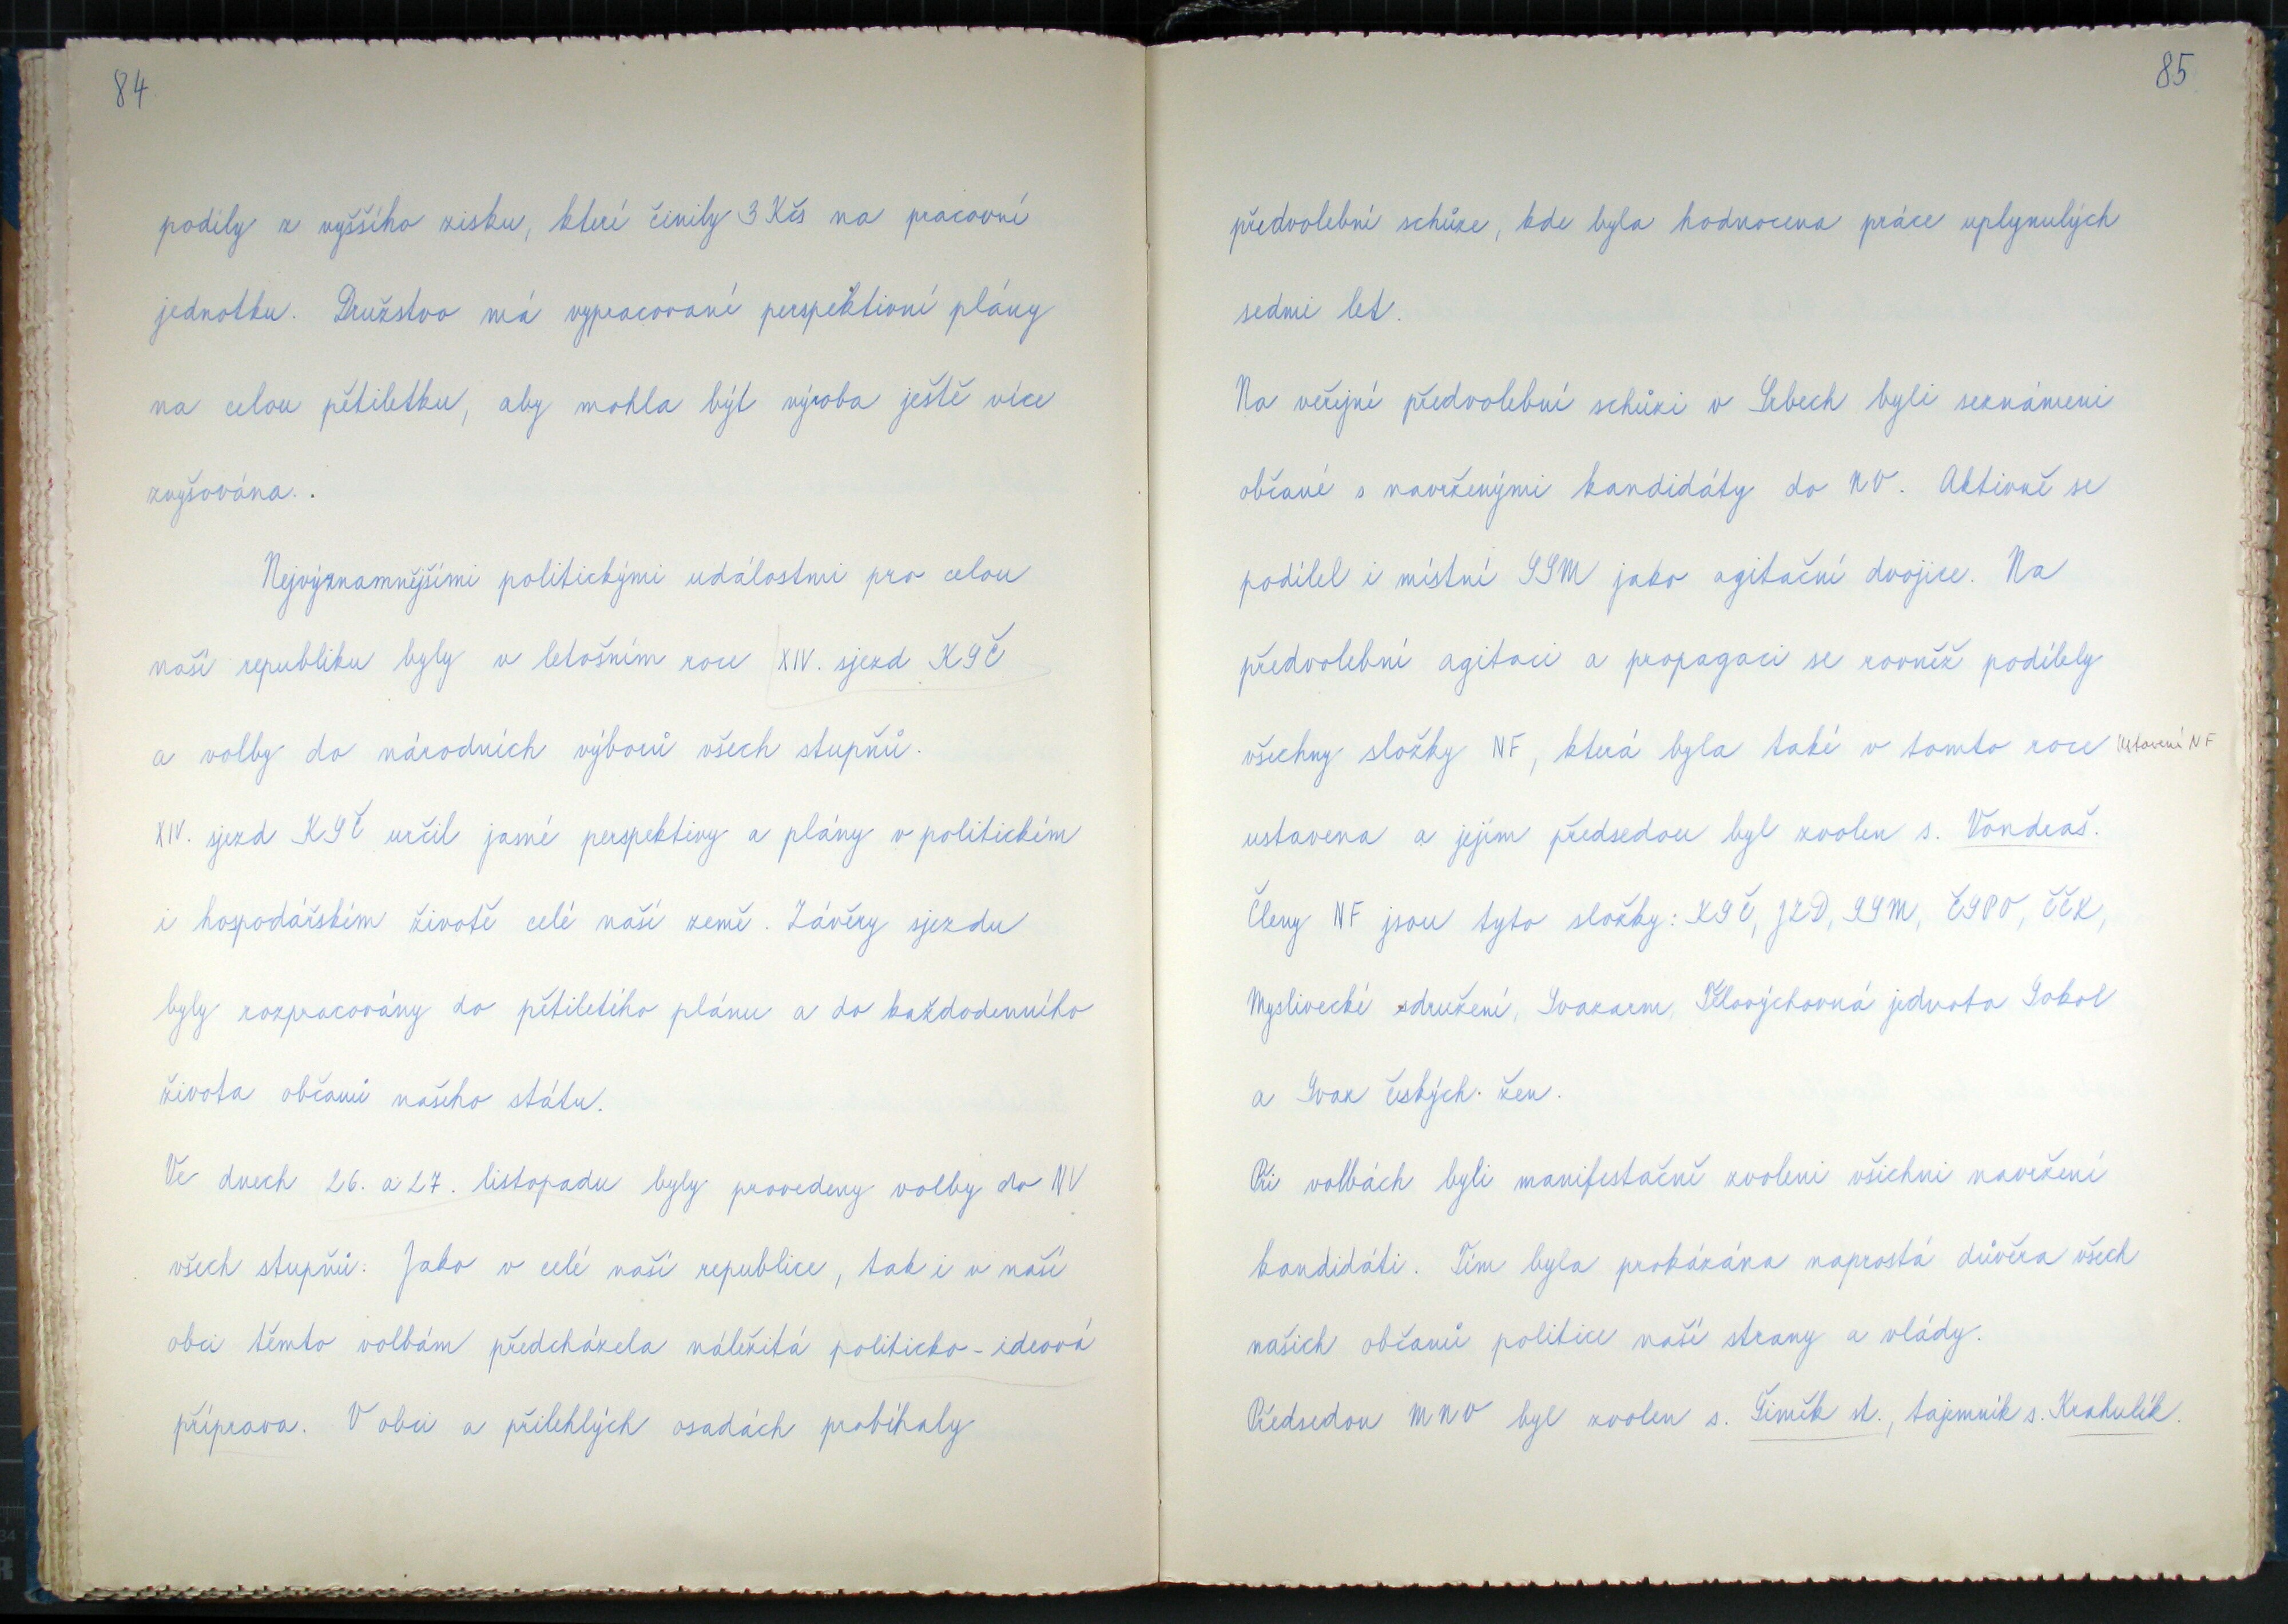 84
podíly z vyššího zisku, které činily 3 Kčs na pracovní
jednotku. Družstvo má vypracované perspektivní plány
na celou pětiletku, aby mohla být výroba ještě více
zvyšována.
Nejvýznamnějšími politickými událostmi pro celou
naši republiku byly v letošním roce XIV. sjezd KSČ
a volby do národních výborů všech stupňů.
XIV. sjezd KSČ určil jasné perspektivy a plány v politickém
i hospodářském životě celé naší země. Závěry sjezdu
byly rozpracovány do pětiletého plánu a do každodenního
života občanů našeho státu.
Ve dnech 26. a 27. listopadu byly provedeny volby do NV
všech stupňů. Jako v celé naší republice, tak i v naší
obci těmto volbám předcházela náležitá politicko-ideová
příprava. V obci a přilehlých osadách probíhaly
85
předvolební schůze, kde byla hodnocena práce uplynulých
sedmi let.
Na veřejné předvolební schůzi v Srbech byli seznámeni
občané s navrženými kandidáty do NV. Aktivně se
podílel i místní SSM jako agitační dvojice. Na
předvolební agitaci a propagaci se rovněž podílely
všechny složky NF, která byla také v tomto roce
Ustavení NF
ustavena a jejím předsedou byl zvolen s. Vondraš.
Členy NF jsou tyto složky: KSČ, JZD, SSM, ČSPO, ČČK,
Myslivecké sdružení, Svazarm, Tělovýchovná jednota Sokol
a Svaz českých žen.
Při volbách byli manifestačně zvoleni všichni navržení
kandidáti. Tím byla prokázána naprostá důvěra všech
našich občanů politice naší strany a vlády.
Předsedou MNV byl zvolen s. Šiměk st., tajemník s. Krahulík.